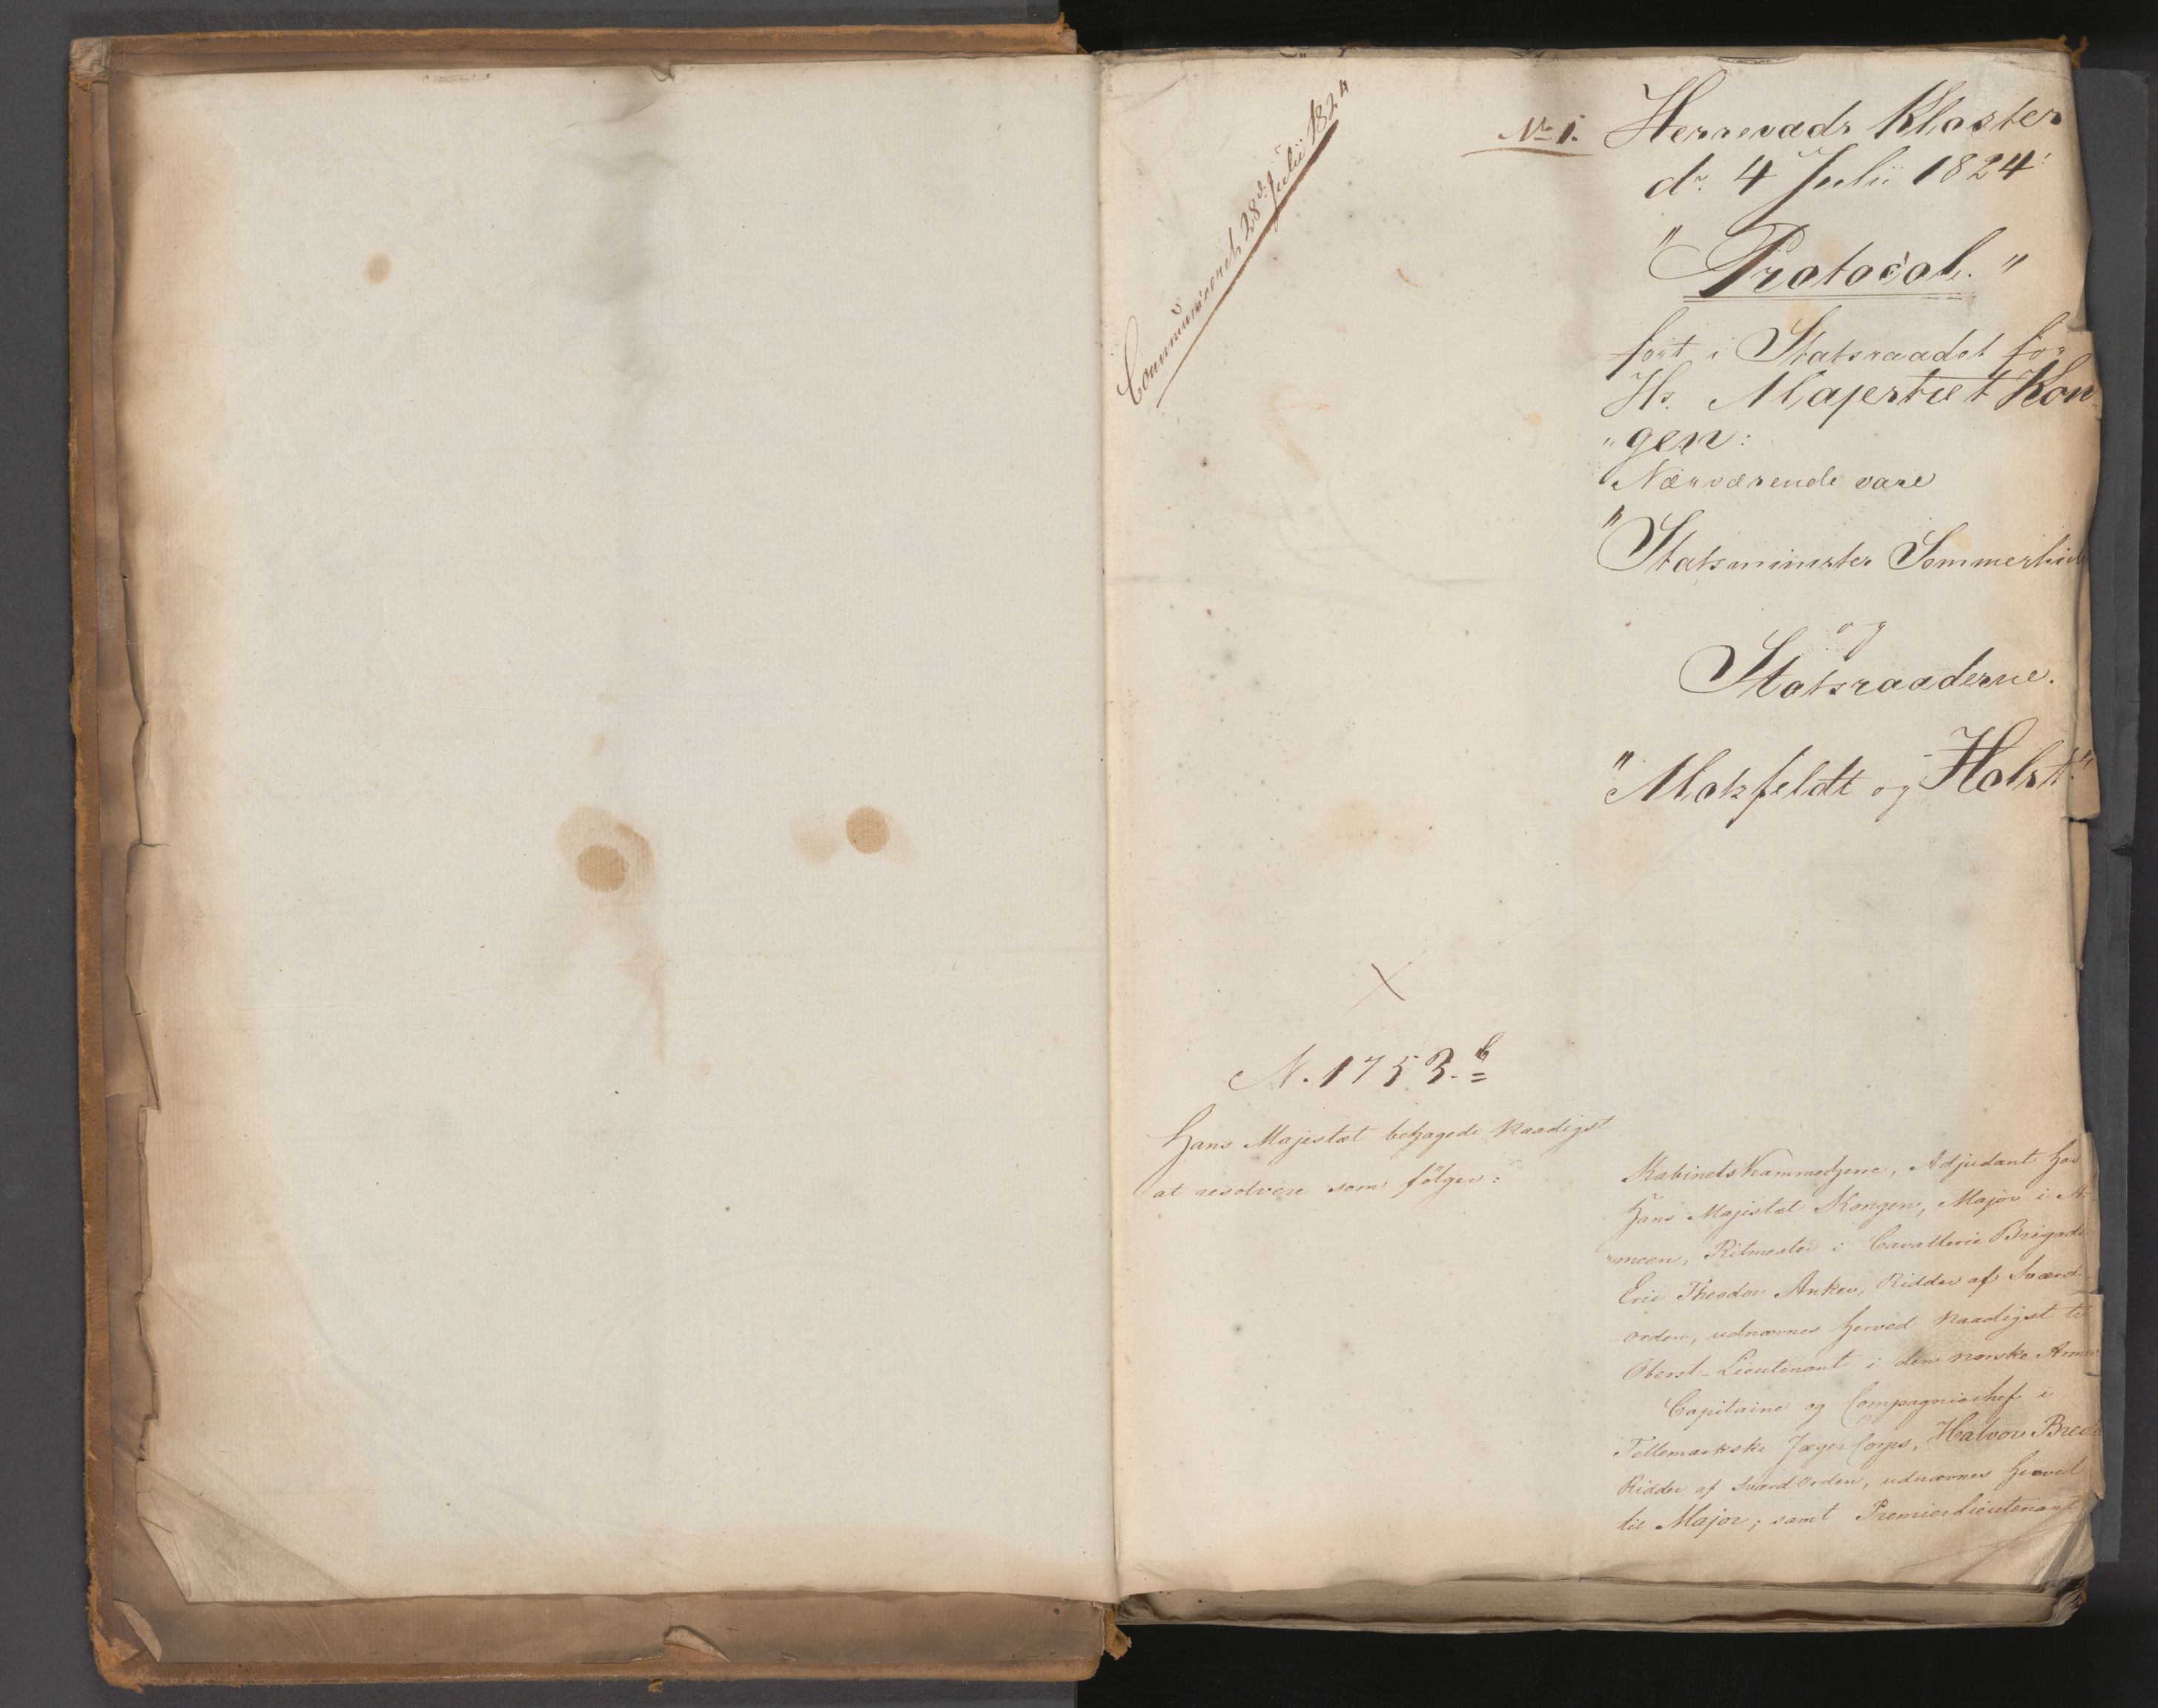 Communiceret 28d. Julii 1824
No 1.
Herrevads Kloster
dr. 4 Julii 1824.
"Protocol."
ført i Statsraadet for
Hs. Majestæt Kon
"gen:
Nærværende vare
"Statsminister Sommerhiel
og
Statsraaderne.
"Motzfeldt og Holst."
N. 1753.b
Hans Majestæt behagede naadigst
at resolvere som følger:
Kabinets Kammerherre, Adjudant hos
Hans Majestæt Kongen, Major i Ar
"meen, Ritmester i Cavallerie Brigade
Eric Theodor Anker, Ridder af Sværd
orden, udnævnes herved naadigst til
Oberst-Lieutenant i den norske Armee
Capitaine og Compagniechef i
Tellemarkske JægerCorps, Halvor Brede
Ridder af SværdOrden, udnævnes herved
til Major; samt PremierLieutenant